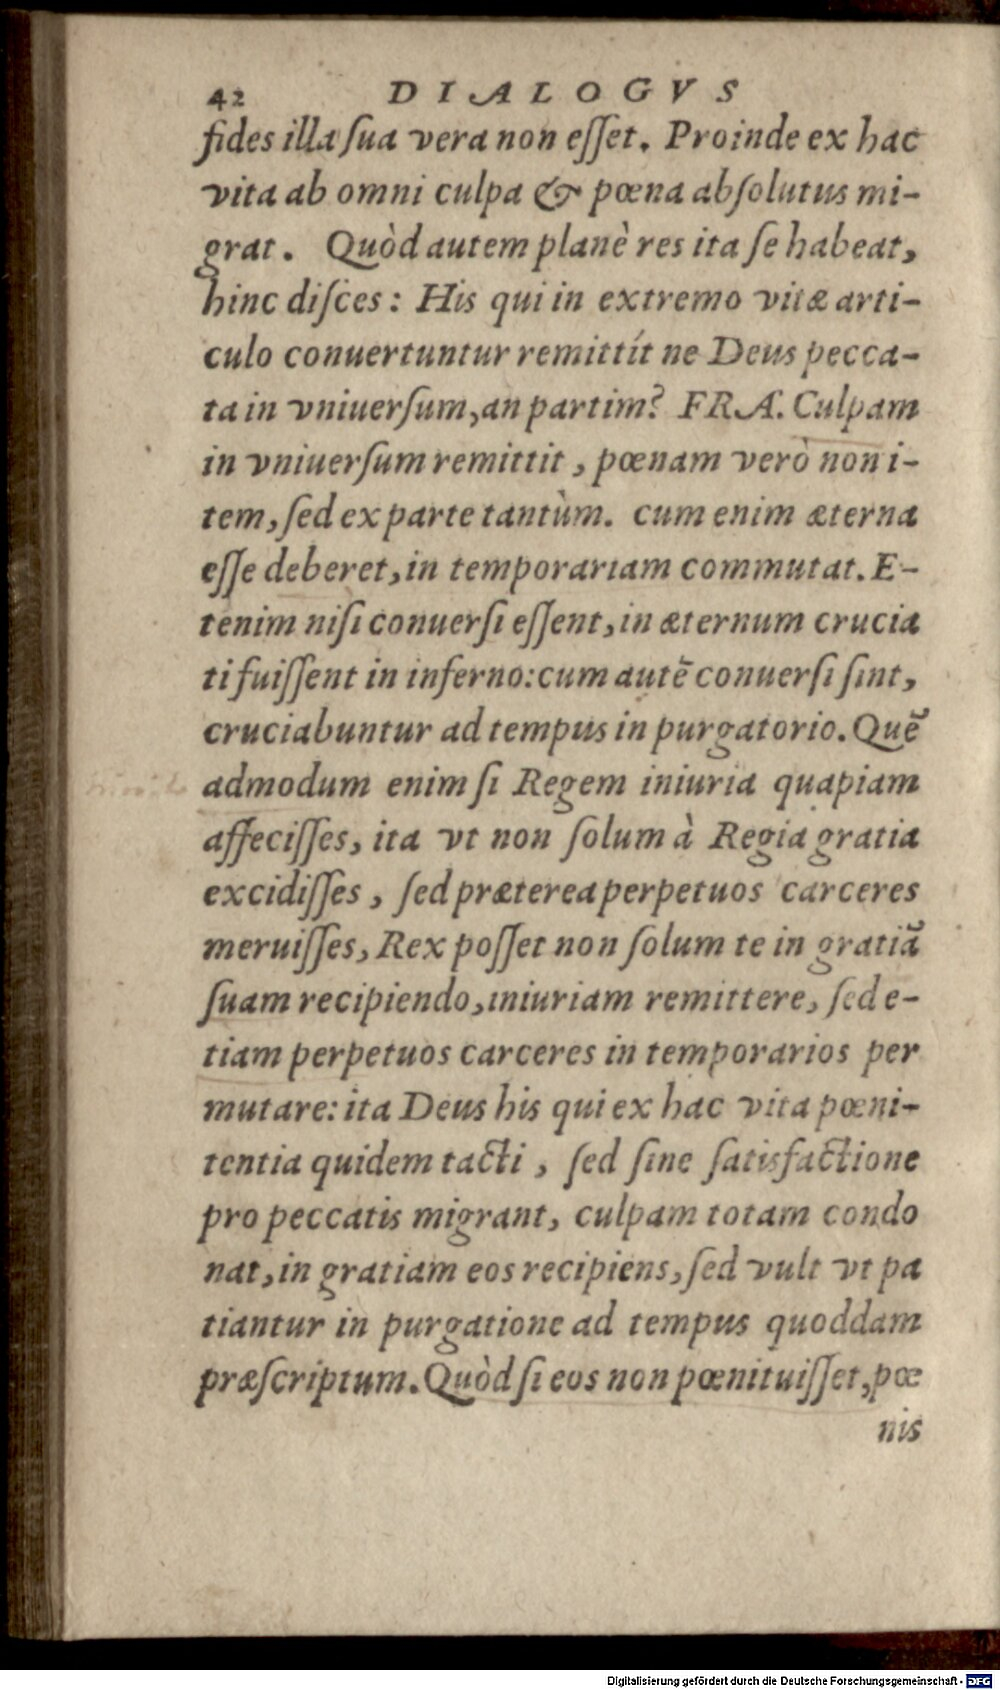 42 DIALOGVS
fides illa ſua vera non eſſet. Proinde ex hac
vita ab omni culpa & pœna abſolutus mi-
grat. Quòd autem planè res ita ſe habeat,
hinc diſces: His qui in extremo vitæ arti-
culo conuertuntur remittít ne Deus pecca-
ta in vniuerſum, an partim? FRA. Culpam
in vniuerſum remittit, pœnam verò non i-
tem, ſed ex parte tantùm. cum enim æterna
eſſe deberet, in temporariam commutat. E-
tenim niſi conuerſi eſſent, in æternum crucia
ti fuiſſent in inferno: cum autē conuerſi ſint,
cruciabuntur ad tempus in purgatorio. Quē
admodum enim ſi Regem iniuria quapiam
affeciſſes, ita vt non ſolum à Regia gratia
excidiſſes, ſed præterea perpetuos carceres
meruiſſes, Rex poſſet non ſolum te in gratiã
ſuam recipiendo, iniuriam remittere, ſed e-
tiam perpetuos carceres in temporarios per
mutare: ita Deus his qui ex hac vita pœni-
tentia quidem tacti, ſed ſine ſatisfactione
pro peccatis migrant, culpam totam condo
nat, in gratiam eos recipiens, ſed vult vt pa
tiantur in purgatione ad tempus quoddam
præſcriptum. Quòd ſi eos non pœnituiſſet, pœ
nis
Digitalisierung gefördert durch die Deutsche Forschungsgemeinschaft - DFG